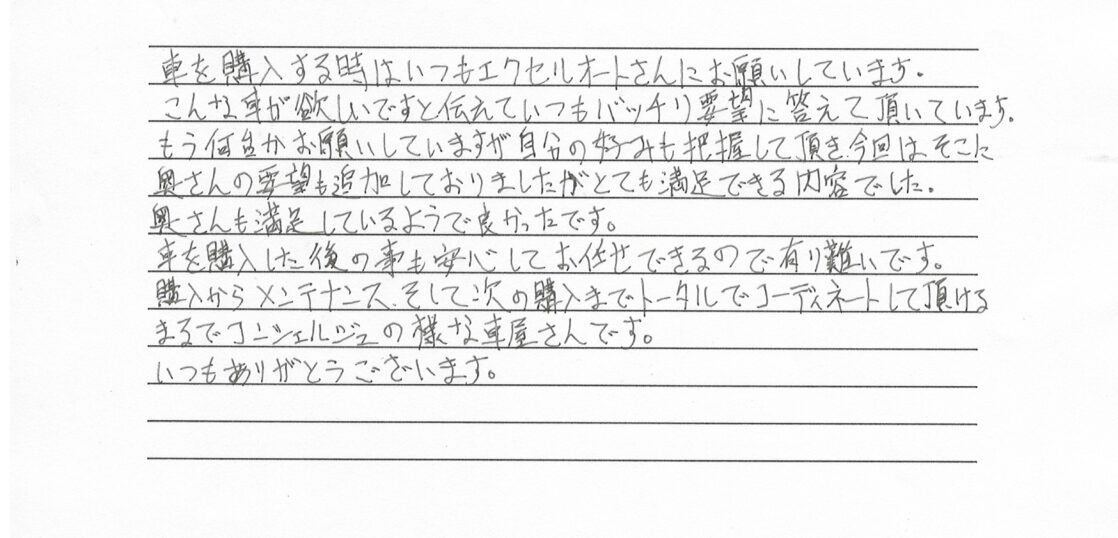 車を購入する時はいつもエクセルオートさんにお願いしています。
こんな車が欲しいですと伝えていつもバッチリ要望に答えて頂いています。
もう何台かお願いしていますが自分の好みも把握して頂き、今回はそこに
奥さんの要望も追加しておりましたがとても満足できる内容でした。
奥さんも満足しているようで良かったです。
車を購入した後の事も安心してお任せできるので有り難いです。
購入からメンテナンス、そして次の購入までトータルでコーディネートして頂ける
まるでコンシェルジュの様な車屋さんです。
いつもありがとうございます。